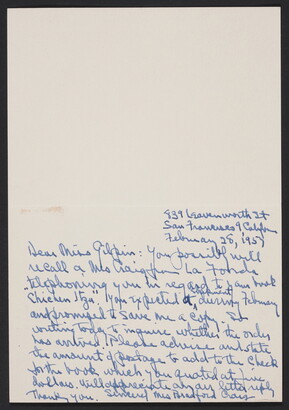 939 Leavenworth St
San Francisco 9 California
February 28, 1957
Dear Miss Gilpin: You possibly will
recall a Mrs Craig from La Fonda
telephoning you in regard to your book
"Chichen Itza". You expected it during February
and promised to save me a copy. So
writing today to inquire whether the order
has arrived. Please advise and state
the amount of postage to add to the check
for the book which you quoted at
dollars. Will appreciate an early reply
Thank you. Sincerely Mrs Bradford